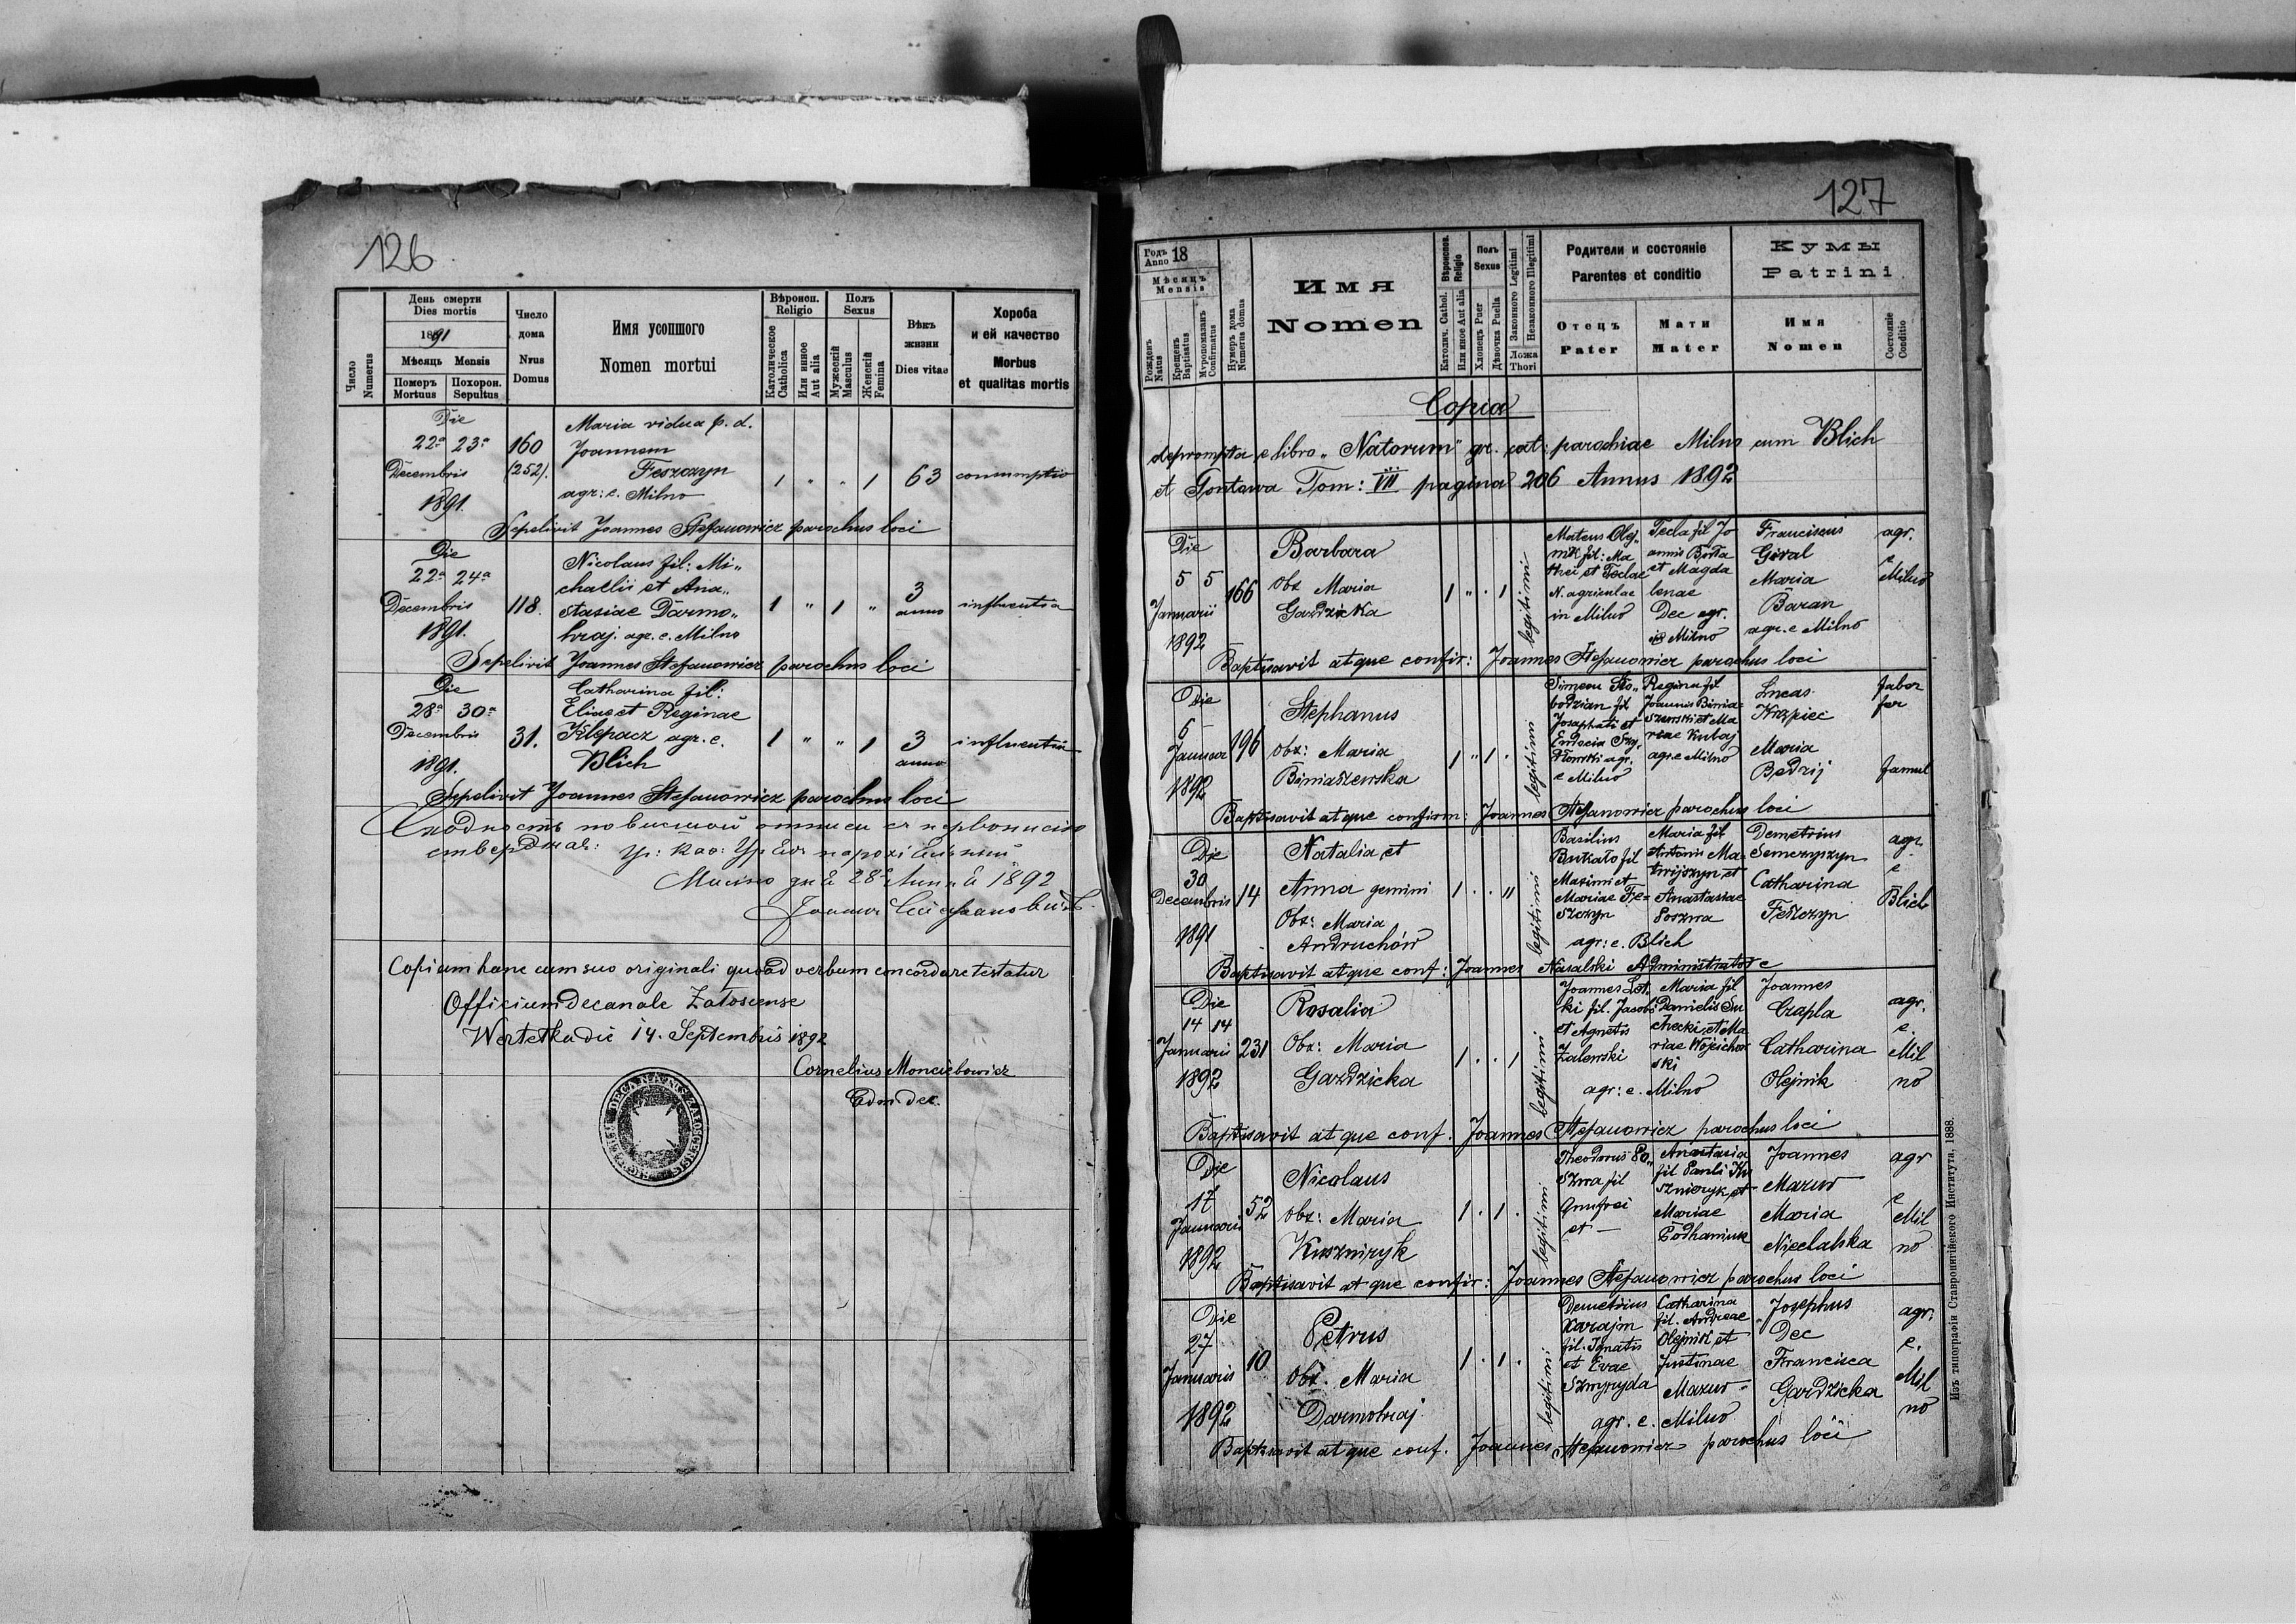 126.
День смерти
Dies mortis
1891
Мѣсяць Mensis
Число
Numerus
Померъ
Mortuus
Похорон.
Sepultus
Число
дома
Nrus
Domus
Имя усопшого
Nomen mortui
Вѣроисп.
Religio
Католическое
Catholica
Или инное
Aut alia
Полъ
Sexus
Мужескій
Masculus
Женскій
Femina
Вѣкъ
жизни
Dies vitae
Хороба
и ей качество
Morbus
et qualitas mortis
Die
22a 23a
Decembris
1891.
160
(252).
Maria vidua p. d.
Joannem
Feszczyn
agr: e. Milno
1 " " 1 63 consumptio
Sepelivit Joannes Stefanowicz parochus loci
Die
22a 24a
Decembris
1891.
118.
Nicolaus fil: Mi„
chaelis et Ana„
stasiae Darmo„
hraj. agr. e. Milno
1 " 1 " 3
anno
influentia
Sepelivit Joannes Stefanowicz parochus loci
Die
28a 30a
Decembris
1891.
31.
Catharina fil:
Eliae et Reginae
Klepacz agr. e.
Blich
1 " " 1 3
anno
influentia
Sepelivit Joannes Stefanowicz parochus loci
1892
Copiam hanc cum suo originali quoad verbum concordare testatur
Officium decanale Załoscense
Wertełka die 14. Septembris 1892
Cornelius Monciebowicz
Adm dec.
127
Годъ
Anno 18
Мѣсяцъ
Mensis
Рожденъ
Natus
Крещенъ
Baptisatus
Муропомазанъ
Confirmatus
Нумеръ дома
Numerus domus
Имя
Nomen
Вѣроисповѣд.
Religio
Католич. Cathol.
Или иное Aut alia
Полъ
Sexus
Хлопецъ Puer
Дѣвочка Puella
Законного Legitimi
Незаконного Illegitimi
Ложа
Thori
Родители и состояніе
Parentes et conditio
Отецъ
Pater
Мати
Mater
Кумы
Patrini
Имя
Nomen
Состояніе
Conditio
Copia
deprompta e libro „Natorum" gr. cat: parochiae Milno cum Blich
et Gontawa Tom: VIII pagina 206 Annus 1892
Die
5 5
Januarii
1892
166
Barbara
obx Maria
Gazdzicka
1 " . 1
legitimi
Mateus Olej„
nik fil: Ma
thei et Teclae
N. agricolae
in Milno
Tecla fil Jo
annis Borta
et Magda
lenae
Dec agr.
in Milno
Franciscus
Giral
Maria
Baran
agr. e Milno
agr.
e
Milno
Baptisavit atque confir: Joannes Stefanowicz parochus loci
Die
5
Januar
1892
196
Stephanus
obx: Maria
Biniaszewska
1 " 1 .
legitimi
Simeon Sło„
bodzian fil
Josaphati et
e Milno
Regina fil
Joannis Binia„
szewski et Ma
riae Kubaj
agr. e Milno
Lucas
Krapiec
Maria
Bedrij
faber
fer
famul
Baptisavit atque confirm: Joannes Stefanowicz parochus loci
Die
30
Decembris
1891
14
Natalia et
Anna gemini
Obx: Maria
Andruchów
1 . . 11
legitimi
Basilius
Bukało fil
Maximi et
Mariae Fe=
szczyn
Maria fil
Antonii Ma„
twijszyn et
Anastasiae
Poszwa
agr: e. Blich
Demetrius
Semczyszyn
Catharina
Feszczyn
agr.
e
Blich
Baptisavit atque conf: Joannes Nasalski Administrator
Die
14 14
Januarii
1892
231
Rosalia
Obx: Maria
Gazdzicka
1 . . 1
legitimi
Joannes Lot„
ki fil. Jacobi
et Agnetis
Zalewski
Maria fil
Danielis Su
checki et Ma
riae Wojcichow
ski
agr: e. Milno
Joannes
Czapla
Catharina
Olejnik
agr.
e.
Mil
no
Baptisavit atque conf. Joannes Stefanowicz parochus loci
Die
17
Januarii
1892
52
Nicolaus
obx: Maria
Kuszniryk
1 . 1 .
legitimi
Theodorus Po„
szwa fil
Onufrei
et —
Anastasia
fil Pauli Ku
szniryk et
Mariae
Podhaniuk
Joannes
Mazur
Maria
Niechalska
agr
e
Mil
no
Baptisavit atque confir: Joannes Stefanowicz parochus loci
Die
27
Januarii
1892
10
Petrus
obx. Maria
Darmohraj
1 . 1 .
legitimi
Demetrius
Karajm
fil. Ignatis
et Evae
Szmyryda
Catharina
fil. Andreae
Olejnik et
Justinae
Mazur
agr. e. Milno
Josephus
Dec
Francisca
Gardzicka
agr.
e.
Mil
no
Baptisavit atque conf. Joannes Stefanowicz parochus loci
Изъ типографіи Ставропигійского Института, 1888.